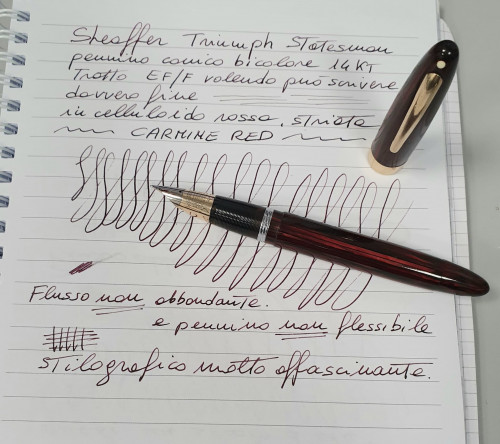 Sheaffer Triumph Statesman
pennino conico bicolore 14 KT
Tratto EF/F volendo può scrivere
davvero fine
in celluloide rossa striata
CARMINE RED
Flusso non abbondante.
e pennino non flessibile
stilografica molto affascinante.